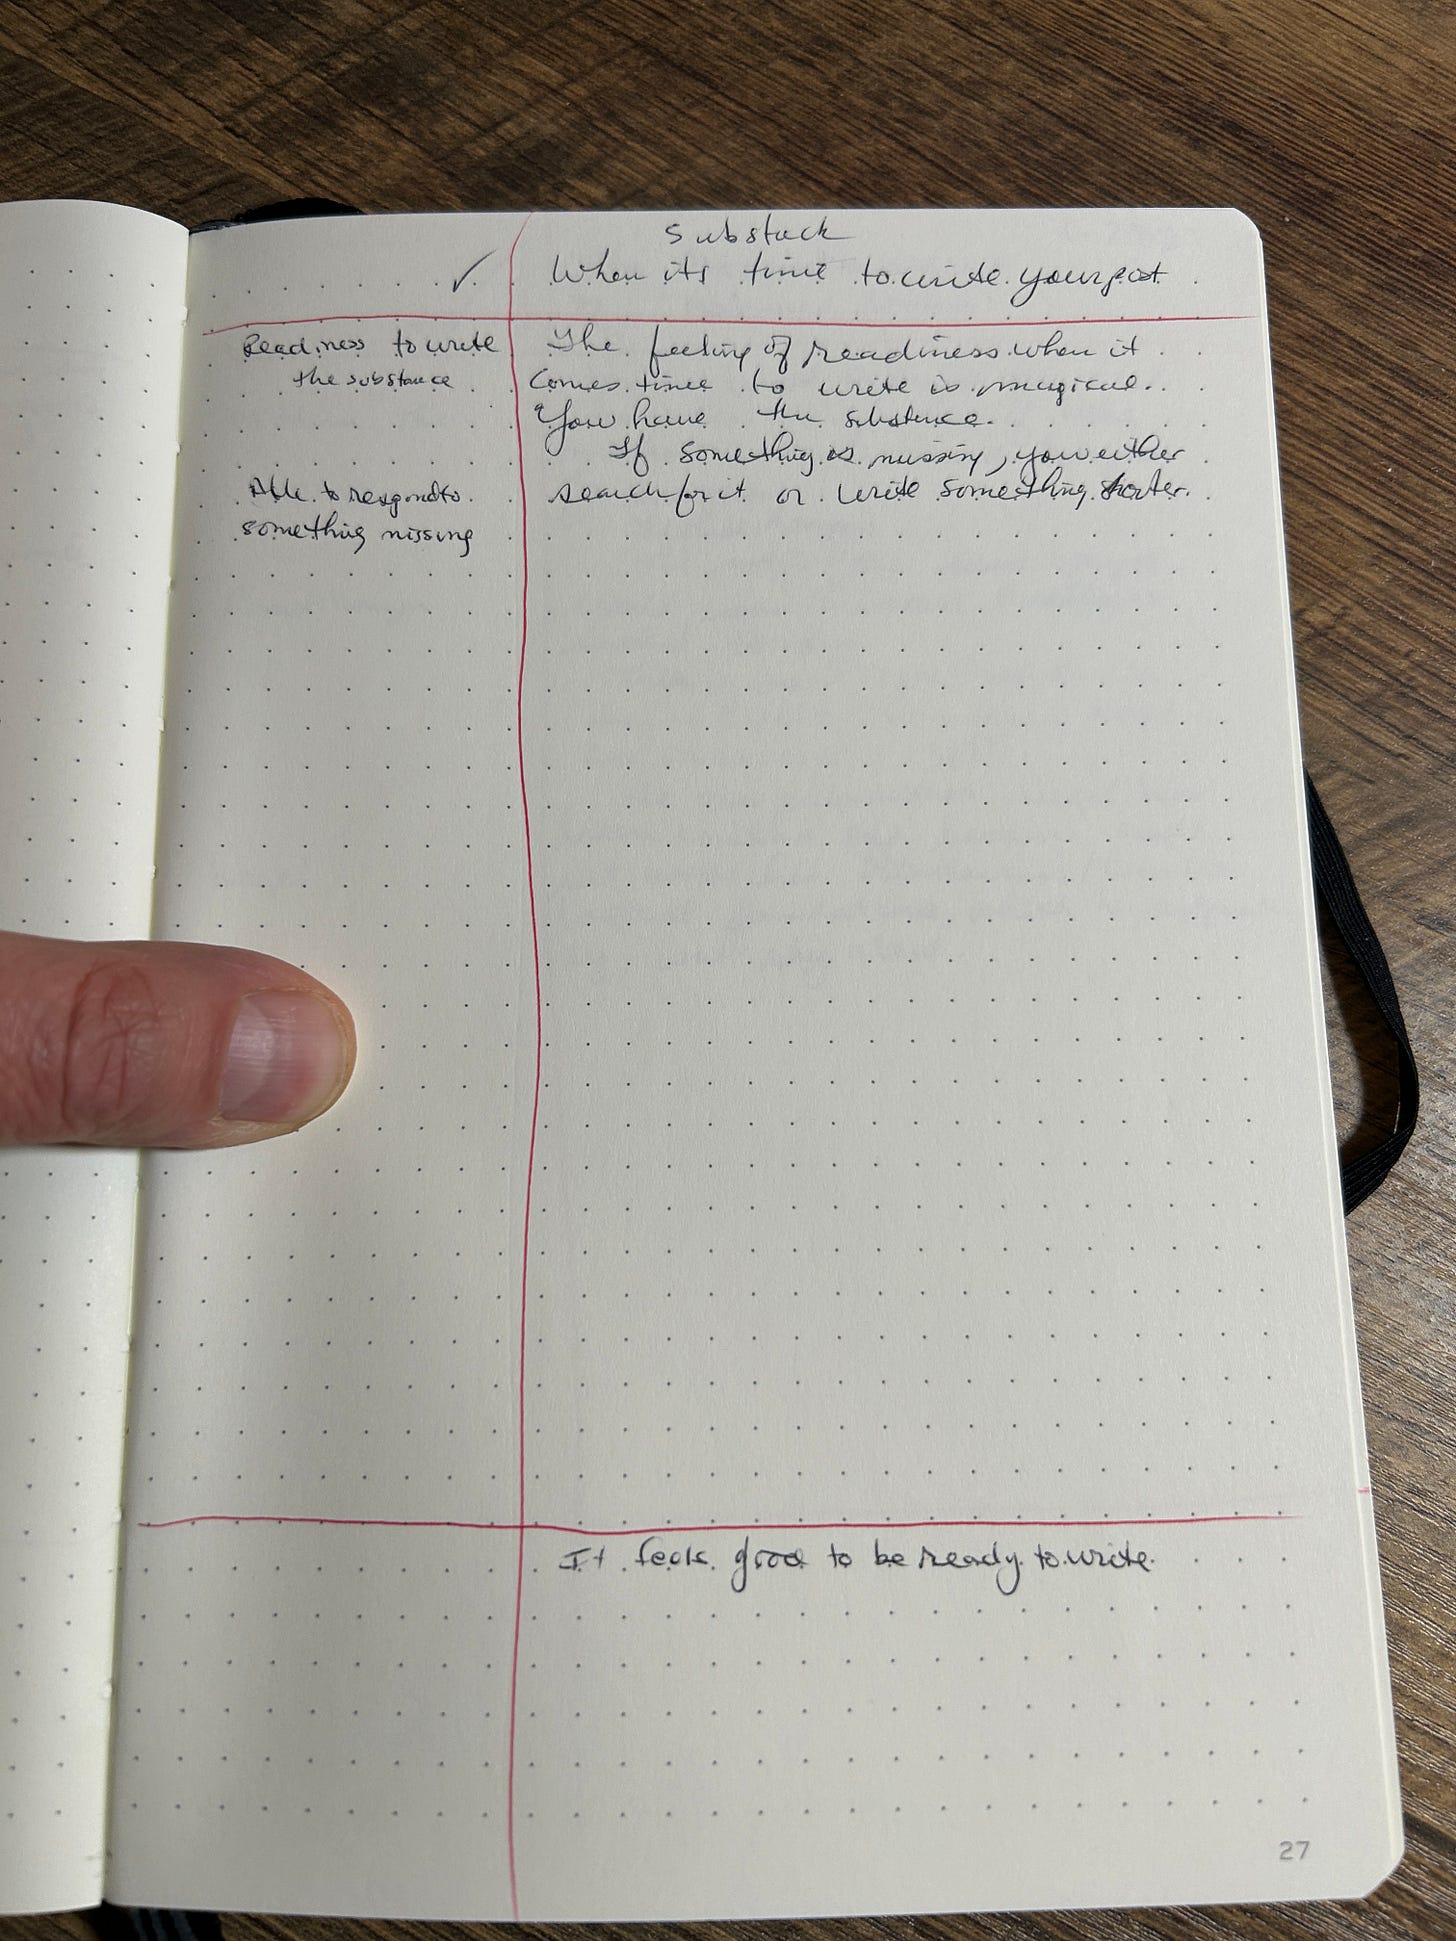 Substack
✓ When its time to write your post
Readiness to write
the substance
Able to respond to
something missing
The feeling of readiness when it
comes time to write is magical.
You have the substance.
If something is missing, you either
search for it or write something shorter.
It feels good to be ready to write.
27